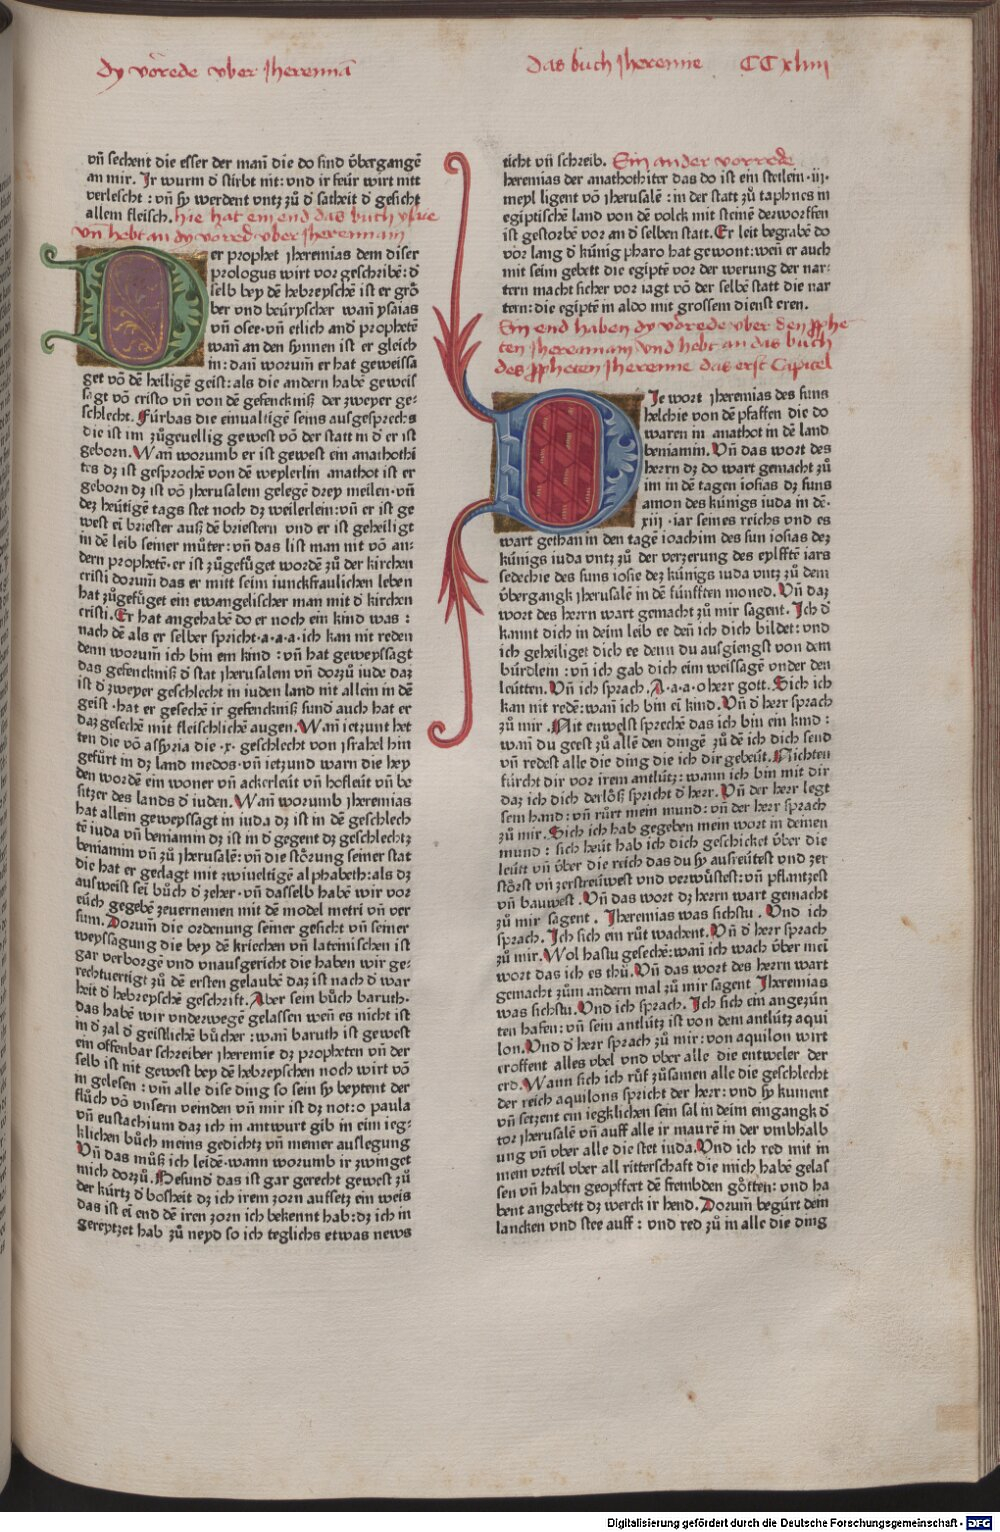 dy vorede vber Jheremiā
das buch Jheremie CCxliiii
vñ sechent die esser der mañ die do sind v̈bergangē
an mir. Ir wurm d' stirbt nit: vnd ir feúr wirt nitt
verlescht : vñ sy werdent vntz zů d' satheit d' gesicht
allem fleisch. hie hat ein end das buch ysaie
vn hebt an dy vorred vber Jheremiam
Der prophet Jheremias dem diser
prologus wirt vor geschribē: d'
selb bey dē hebreyschē ist er grö
ber vnd beúryscher wañ ysaias
vñ osee·vñ etlich and' prophetē
wañ an den synnen ist er gleich
in: dañ worum̄ er hat geweissa
get vō dē heiligē geist: als die andern habē geweis
sagt vō cristo vñ von dē gefencknıß der zweyer ge⸗
schlecht. Fúrbas die einualtigē seins ausgesprechs
die ist im zůgeuellig gewest vō der statt in d' er ist
geborn. Wañ worumb er ist gewest ein anathothi
tes dz ist gesprochē von dē weylerlin anathot ist er
geborn dz ist vō Jherusalem gelegē drey meilen·vñ
dez heútigē tags stet noch dz weilerlein: vñ er ist ge
west eī briester auß dē briestern vnd er ist geheiligt
in dē leib seiner můter: vñ das list man nit vō an⸗
dern prophetē·er ist zůgefúget wordē zů der kirchen
cristi dorum̄ das er mitt seim iunckfraulichen leben
hat zůgefúget ein ewangelischer man mit d' kirchen
cristi. Er hat angehabē do er noch ein kind was :
nach dē als er selber spricht·a·a·a·ich kan nit reden
denn worum̄ ich bin em kind : vñ hat geweyssagt
das gefenckniß d' stat Jherusalem vñ dorzů iude daz
ist d' zweyer geschlecht in iuden land nit allein in dē
geist·hat er gesechē ir gefenckniß sund auch hat er
daz gesechē mit fleischlichē augen. Wañ ietzunt het
ten die vō assyria die ·x· geschlecht von jsrahel hin
gefúrt in dz land medos·vñ ietzund warn die hey
den wordē ein woner vñ ackerleút vñ hofleút vñ be
sitzer des lands d' iuden. Wañ worumb Jheremias
hat allein geweyssagt in iuda dz ist in dē geschlech
tē iuda vñ beniamin dz ist in d' gegent dz geschlechtz
beniamin vñ zů Jherusalē: vñ die störung seiner stat
die hat er geclagt mit zwiueltigē alphabeth: als dz
ausweist seī bůch d' zeher·vñ dasselb habē wir vor
eúch gegebē zeuernemen mit dē model metri vñ ver
sum. Dorum̄ die ordenung seiner gesicht vñ seiner
weyssagung die bey dē kriechen vñ lateinischen ist
gar verborgē vnd vnausgericht die haben wir ge⸗
rechtuertigt zů dē ersten gelaubē daz ist nach d' war
heit d' hebreyschē geschrift. Aber sein bůch baruth·
das habē wir vnderwegē gelassen weñ es nicht ist
in d' zal d' geistlichē bůcher : wañ baruth ist gewest
ein offenbar schreiber Jheremie dz propheten vñ der
selb ist nit gewest bey dē hebreyschen noch wirt vō
in gelesen : vm̄ alle dise ding so sein sy beytent der
flůch vō vnsern veinden vñ mir ist dz not: o paula
vñ eustachium daz ich in antwurt gib in eim ieg⸗
klichen bůch meins gedichtz vñ meiner auslegung
Vñ das můß ich leidē·wann worumb ir zwinget
mich dorzů. Besund' das ist gar gerecht gewest zů
der kúrtz d' bosheit dz ich irem zorn aufsetz ein weis
das ist eī end dē iren zorn ich bekennt hab: dz ich in
gereytzet hab zů neyd so ich teglichs etwas news
ticht vñ schreib. Ein ander vorrede
Iheremias der anathothiter das do ist ein stetlein ·iij·
meyl ligent vō Jherusalē : in der statt zů taphnes in
egiptischē land von dē volck mit steinē derworffen
ist gestorbē vor an d' selben statt. Er leit begrabē do
vor lang d' kúnig pharo hat gewont: weñ er auch
mit seim gebett die egiptē vor der werung der nar⸗
tern macht sicher vor iagt vō der selbē statt die nar
tern: die egiptē in aldo mit grossem dienst eren.
Ein end haben dy vorede vber den pphe
ten Jheremiam vnd hebt an das buch
des ppheten Jheremie das erst Capitel
Die wort Jheremias des suns
helchie von dē pfaffen die do
waren in anathot in dē land
beniamin. Vñ das wort des
herrn dz do wart gemacht zů
im in dē tagen iosias dz suns
amon des kúnigs iuda in dē·
xiij ·iar seines reichs vnd es
wart gethan in den tagē ioachim des sun iosias dez
kúnigs iuda vntz zů der verzerung des eylfftē iars
sedechie des suns iosie dez kúnigs iuda vntz zů dem
v̈bergangk Jherusalē in dē fúnfften moned. Vñ daz
wort des herrn wart gemacht zů mir sagent. Ich d'
kannt dich in deim leib ee deñ ich dich bildet: vnd
ich geheiliget dich ee denn du ausgiengst von dem
búrdlem : vñ ich gab dich eim weissagē vnder den
leútten. Vñ ich sprach. A·a·a·o herr gott. Sich ich
kan nit redē: wañ ich bin eī kind. Vñ d' herr sprach
zů mir . Nit enwelst sprechē das ich bin ein kind :
wañ du geest zů allē den dingē zů dē ich dich send
vñ redest alle die ding die ich dir gebeút. Nichten
fúrcht dir vor irem antlútz: wann ich bin mit dir
daz ich dich derlöß spricht d' herr. Vñ der herr legt
sein hand: vñ růrt mein mund: vñ der herr sprach
zů mir. Sich ich hab gegeben mein wort in deinen
mund : sich heút hab ich dich geschicket v̈ber die
leútt vñ v̈ber die reich das du sy ausreútest vnd zer
störst vñ zerstreúwest vnd verwústest: vñ pflantzest
vñ bauwest . Vñ das wort dz herrn wart gemacht
zů mir sagent . Jheremias was sichstu . Vnd ich
sprach. Ich sich ein růt wachent. Vñ d' herr sprach
zů mir. Wol hastu gesechē: wañ ich wach v̈ber meī
wort das ich es thů. Vñ das wort des herrn wart
gemacht zům andern mal zů mir sagent Jheremias
was sichstu. Vnd ich sprach. Ich sich ein angezún
ten hafen: vñ sein antlútz ist von dem antlútz aqui
lon. Vnd d' herr sprach zů mir: von aquilon wirt
eroffent alles vbel vnd vber alle die entweler der
erd. Wann sich ich růf zůsamen alle die geschlecht
der reich aquilons spricht der herr: vnd sy kument
vñ setzent ein iegklichen sein sal in deim eingangk d'
tor Jherusalē vñ auff alle ir maurē in der vmbhalb
ung vñ vber alle die stet iuda. Vnd ich red mit in
mein vrteil vber all ritterschaft die mich habē gelas
sen vñ haben geopffert dē frembden götten: vnd ha
bent angebett dz werck ir hend. Dorum̄ begúrt dem
lancken vnd stee auff : vnd red zů in alle die ding
Digitalisierung gefördert durch die Deutsche Forschungsgemeinschaft - DFG